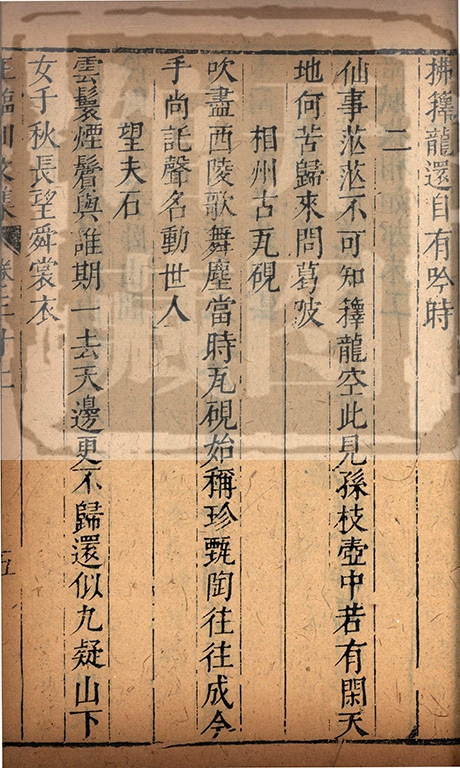 拂籜龍還自有吟時
二
仙事茫茫不可知籜龍空此見孫枝壺中若有閑天
地何苦歸來問葛陂
相州古瓦硯
吹盡西陵歌舞塵當時瓦硯始稱珍甄陶往往成今
手尚託聲名動世人
望夫石
雲鬟煙鬢與誰期一去天邊更不歸還似九疑山下
女千秋長望舜裳衣
王臨川文集 卷三十二 五